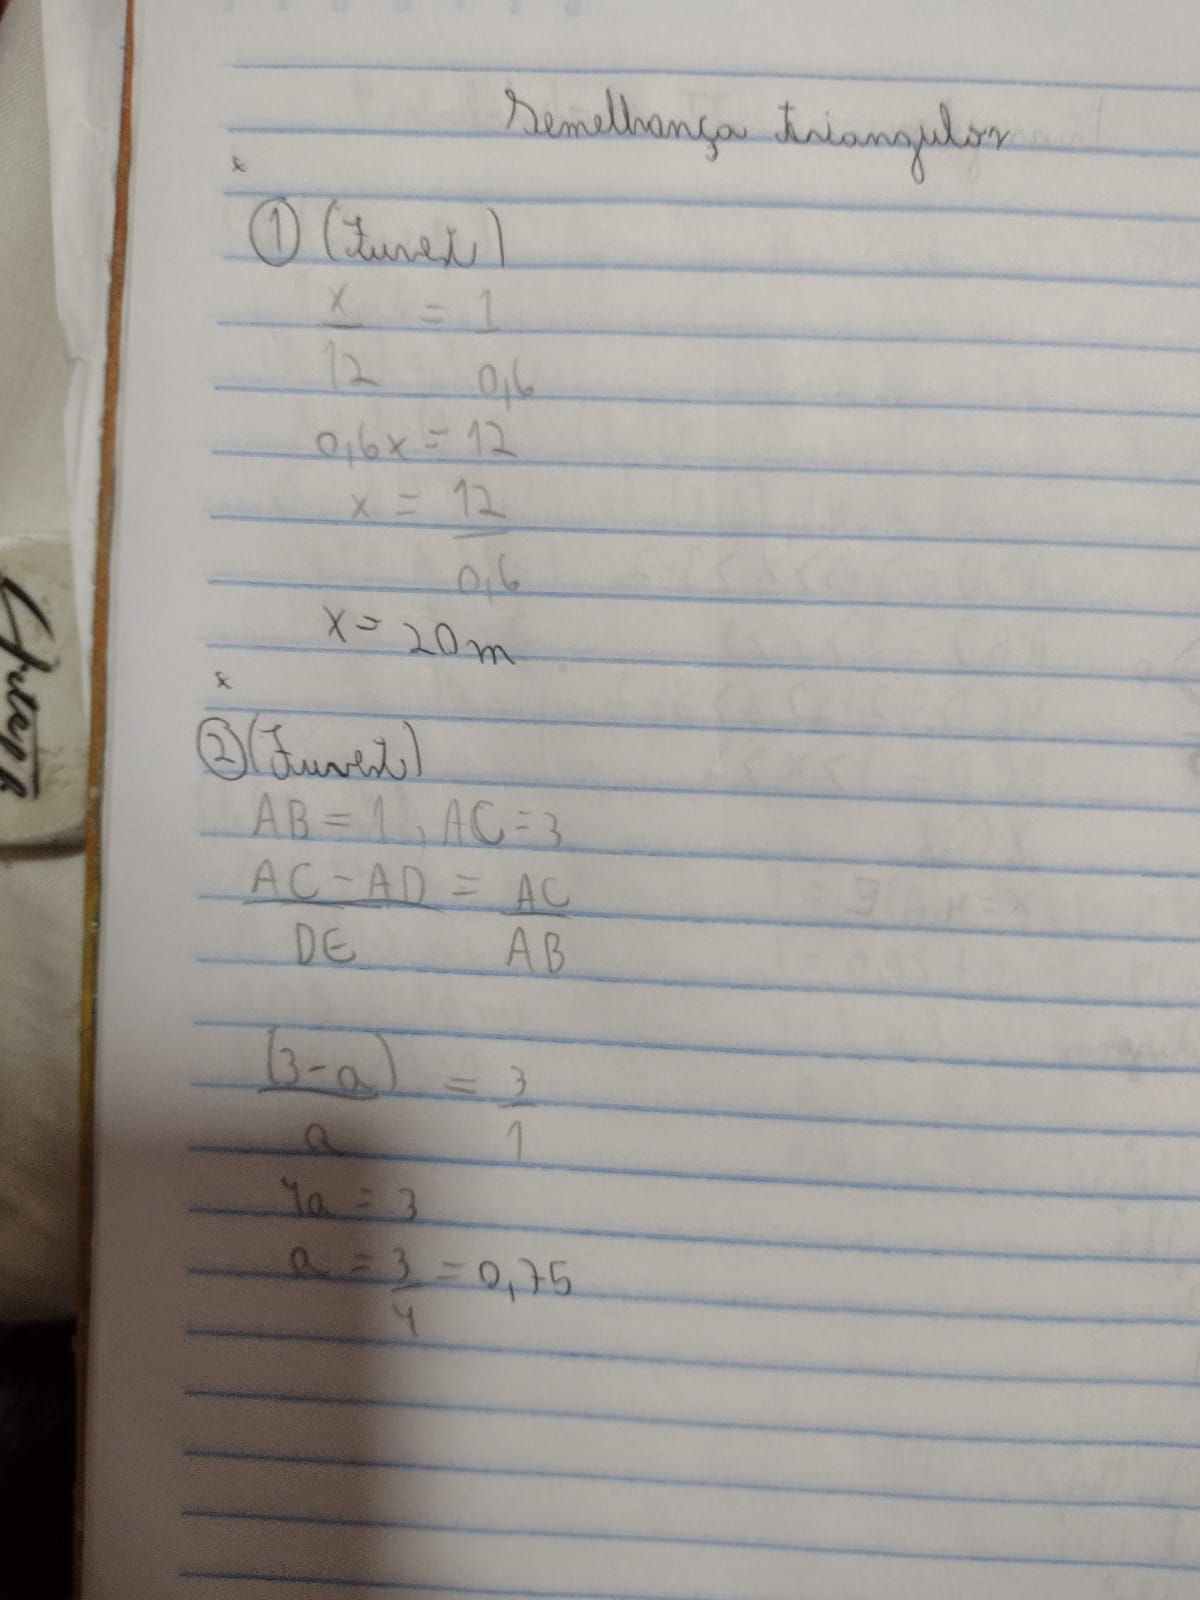 Semelhança triangular
①(Fuvest)
x/12 = 1/0,6
0,6x = 12
x = 12/0,6
x = 20m
②(Fuvest)
AB = 1, AC = 3
AC - AD/DE = AC/AB
(3-a)/a = 3/1
4a = 3
a = 3/4 = 0,75